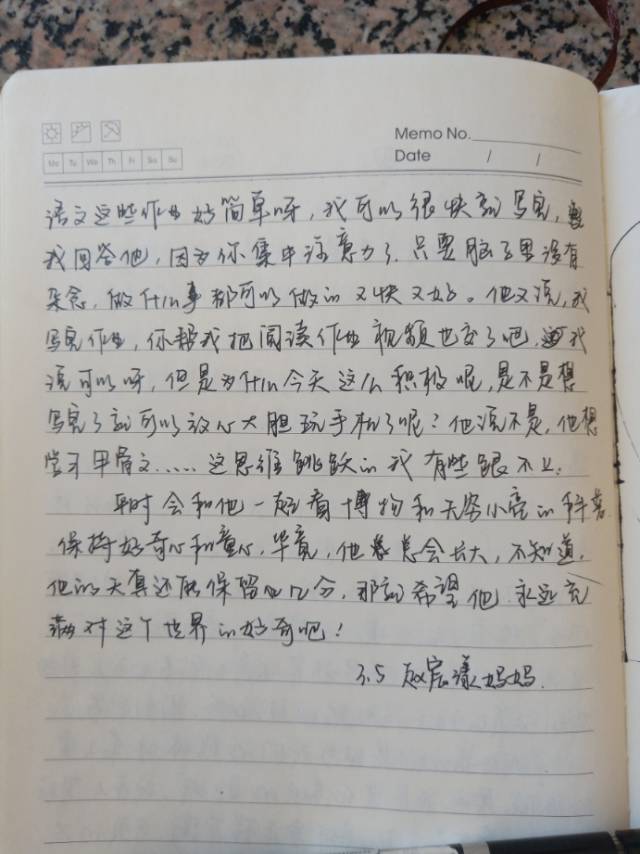 Memo No.
Mo Tu We Th Fr Sa Su
Date / /
语文这些作业好简单呀，我可以很快就写完，
我回答他，因为你集中注意力了，只要脑子里没有
杂念，做什么事都可以做的又快又好。他又说，我
写完作业，你帮我把阅读作业视频也交了吧，我
说可以呀，但是为什么今天这么积极呢，是不是想
写完了就可以放心大胆玩手机了呢？他说不是，他想
学习甲骨文……这思维跳跃的我有些跟不上。
平时会和他一起看博物和无穷小亮的科普
保持好奇心和童心，毕竟，他总会长大，不知道，
他的天真还能保留几分，那就希望他永远充
满对这个世界的好奇吧！
3.5 赵宸漾妈妈